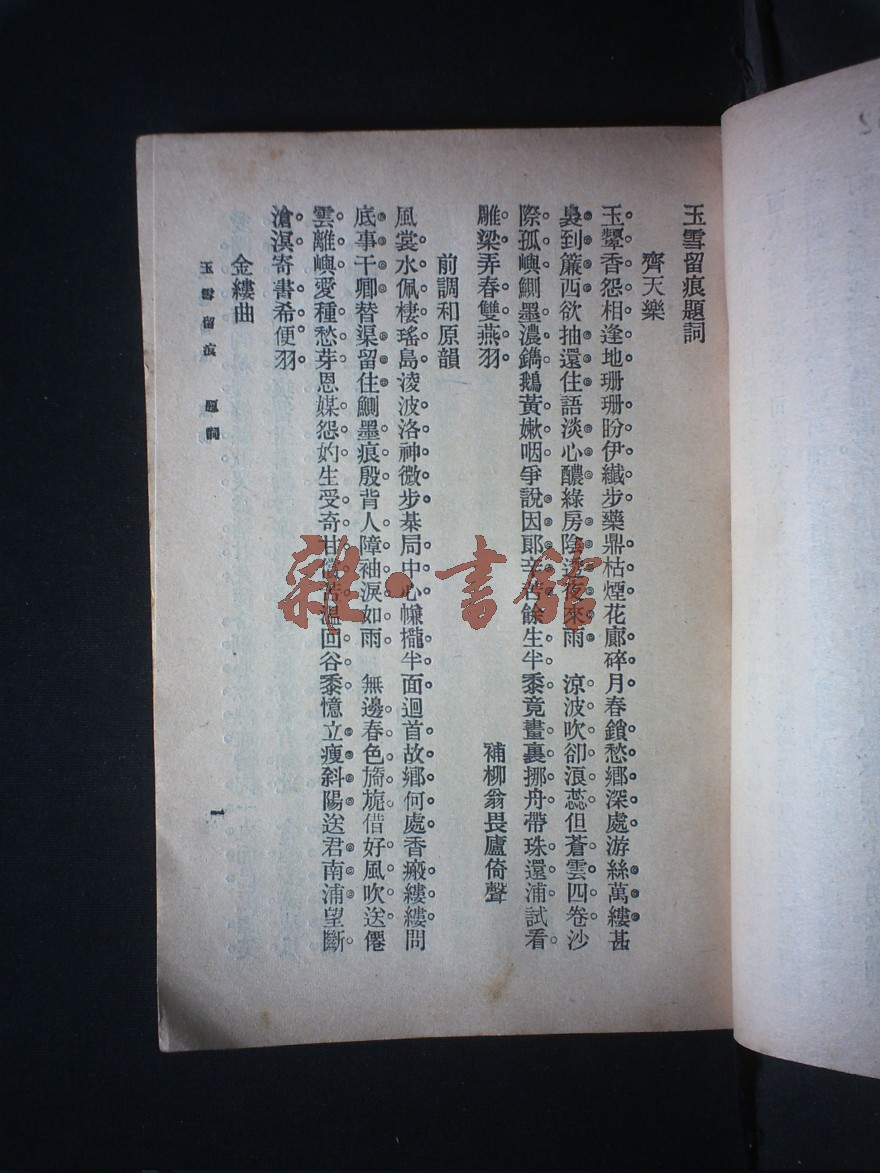 玉雪留痕題詞
齊天樂
玉顰香怨相逢地珊珊盼伊纖步藥鼎枯煙花廊碎月春鎖愁鄉深處游絲萬縷甚
裊到簾四欲抽還住語淡心醲綠房陰透夜來雨　涼波吹卻滾蕊但蒼雲四卷沙
際孤嶼鰂墨濃鐫鵝黃嫩咽爭說因郎辛苦餘生半黍竟畫裏挪舟帶珠還浦試看
雕梁弄春雙燕羽
補柳翁畏廬倚聲
前調和原韻
風裳水佩棲瑤島淩波洛神微步棊局中心幨攏半面迴首故鄉何處香瘢縷縷問
底事干卿替渠留住鰂墨痕殷背人障袖淚如雨　無邊春色旖旎借好風吹送僊
雲離嶼愛種愁芽恩媒怨妁生受奇甘苦溫回谷黍憶立瘦斜陽送君南浦望斷
滄溟寄書希便羽
金縷曲
玉雪留痕　題詞
一
雜·書館